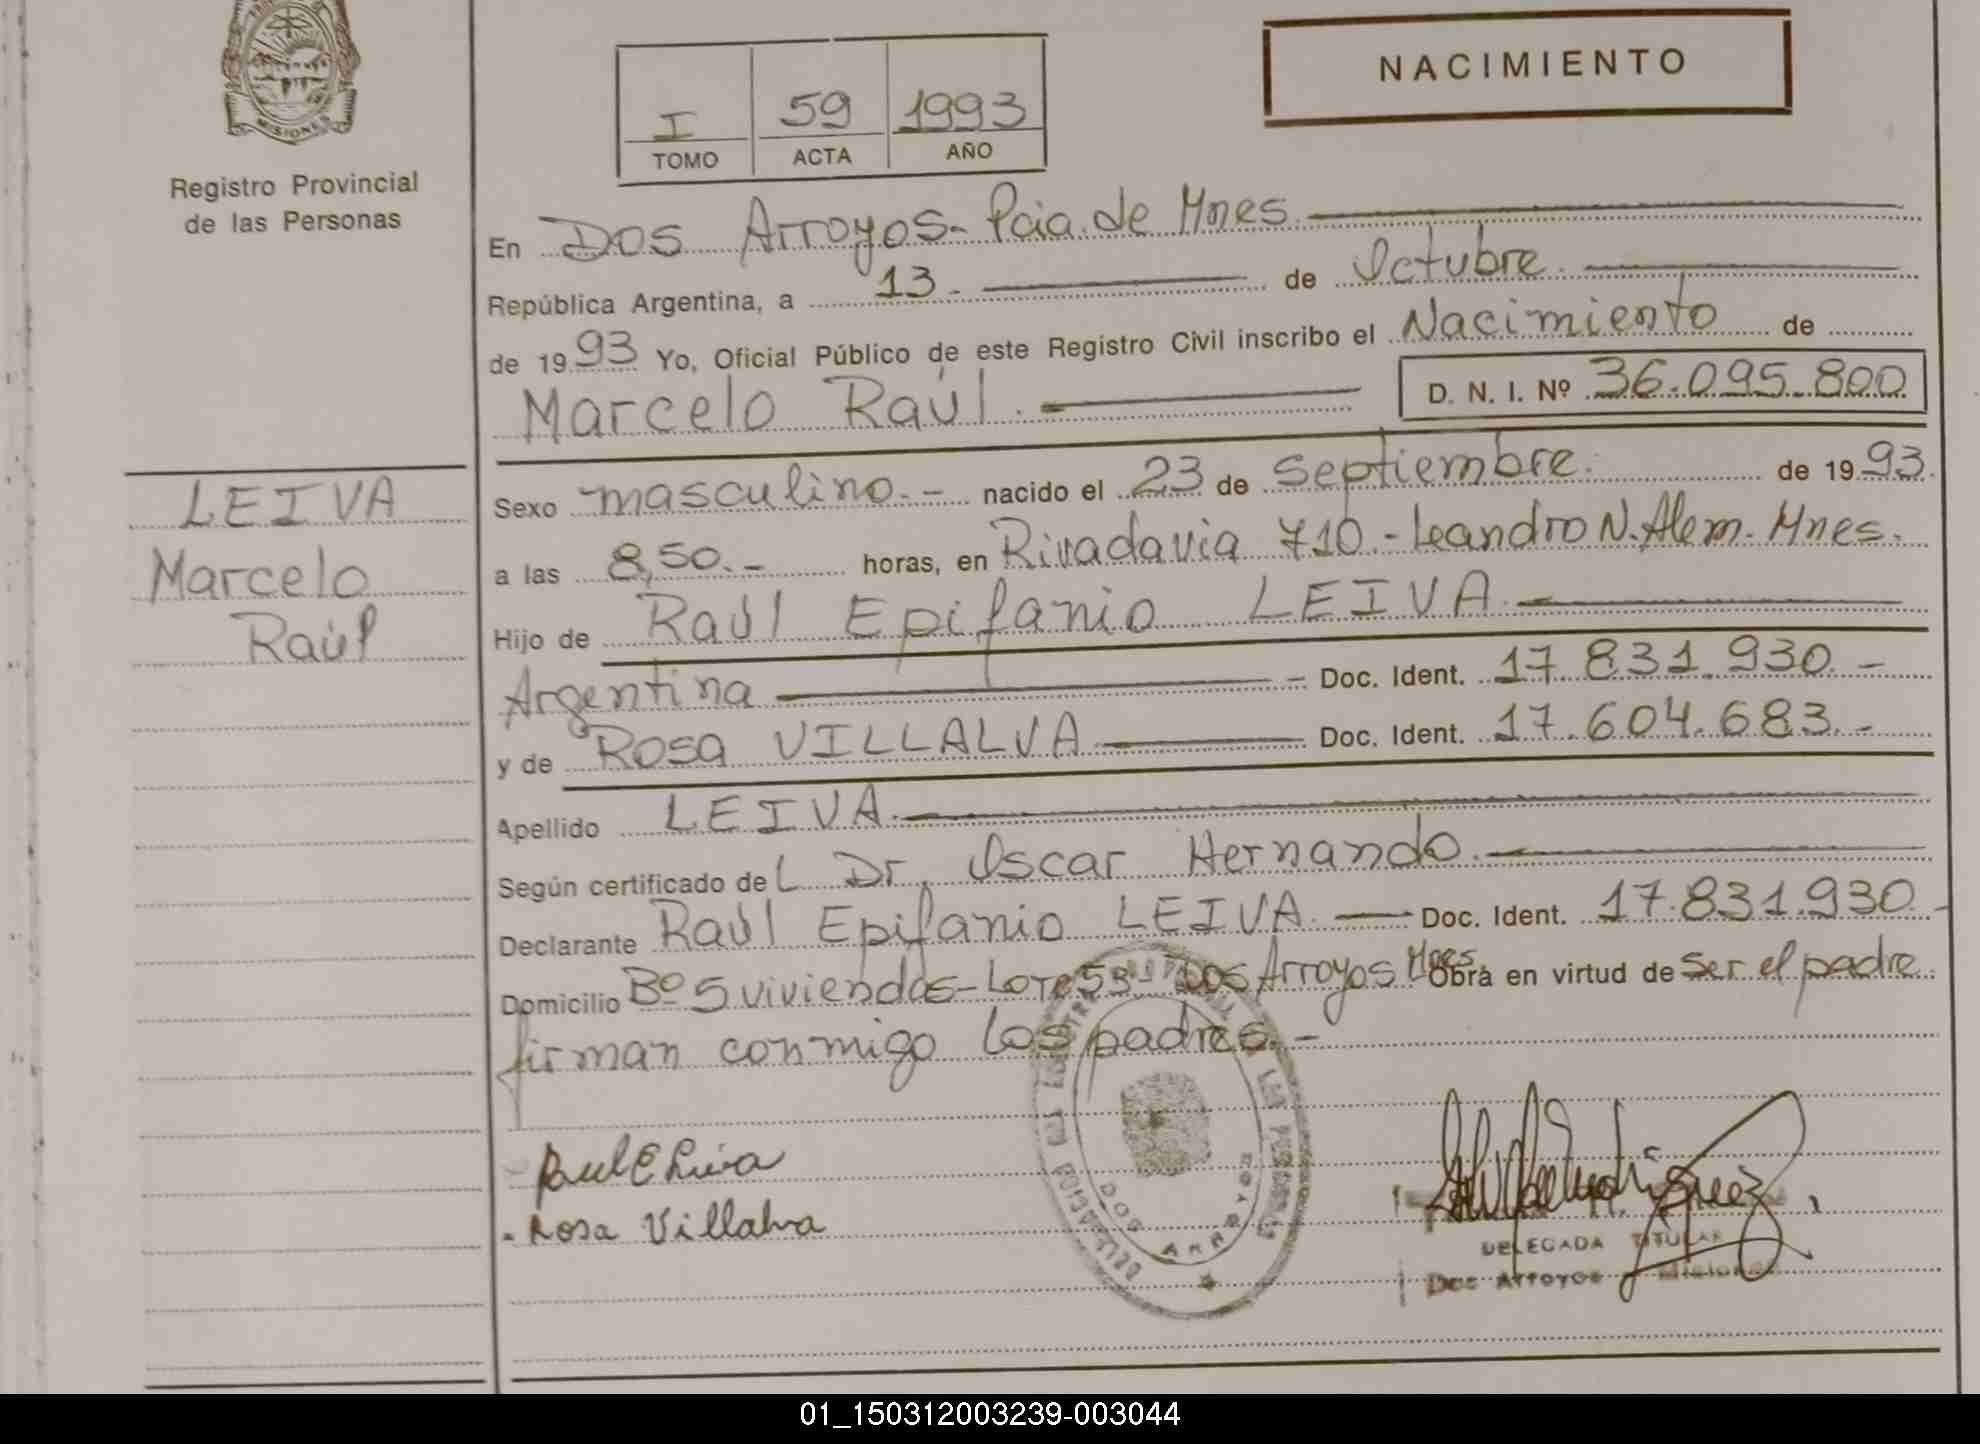 MISIONES
Registro Provincial
de las Personas
I 59 1993
TOMO ACTA AÑO
NACIMIENTO
En Dos Arroyos - Pcia. de Mnes.
República Argentina, a 13.- de Octubre.
de 1993 Yo, Oficial Público de este Registro Civil inscribo el Nacimiento de
Marcelo Raúl.
D. N. I. Nº 36.095.800
LEIVA
Marcelo
Raúl
Sexo masculino.- nacido el 23 de Septiembre. de 1993.
a las 8,50.- horas, en Rivadavia 710.- Leandro N. Alem. Mnes.
Hijo de Raúl Epifanio LEIVA.
Argentina - Doc. Ident. 17.831.930.-
y de Rosa VILLALVA Doc. Ident. 17.604.683.-
Apellido LEIVA.
Según certificado del Dr. Oscar Hernando.
Declarante Raúl Epifanio LEIVA. Doc. Ident. 17.831.930-
Domicilio Bº 5 viviendas - Lote 53 - Dos Arroyos Mnes. Obra en virtud de ser el padre.
firman conmigo los padres.-
Raul E Leiva
Rosa Villalva
DOS ARROYOS
DELEGADA TITULAR
Dos Arroyos Misiones
01_150312003239-003044